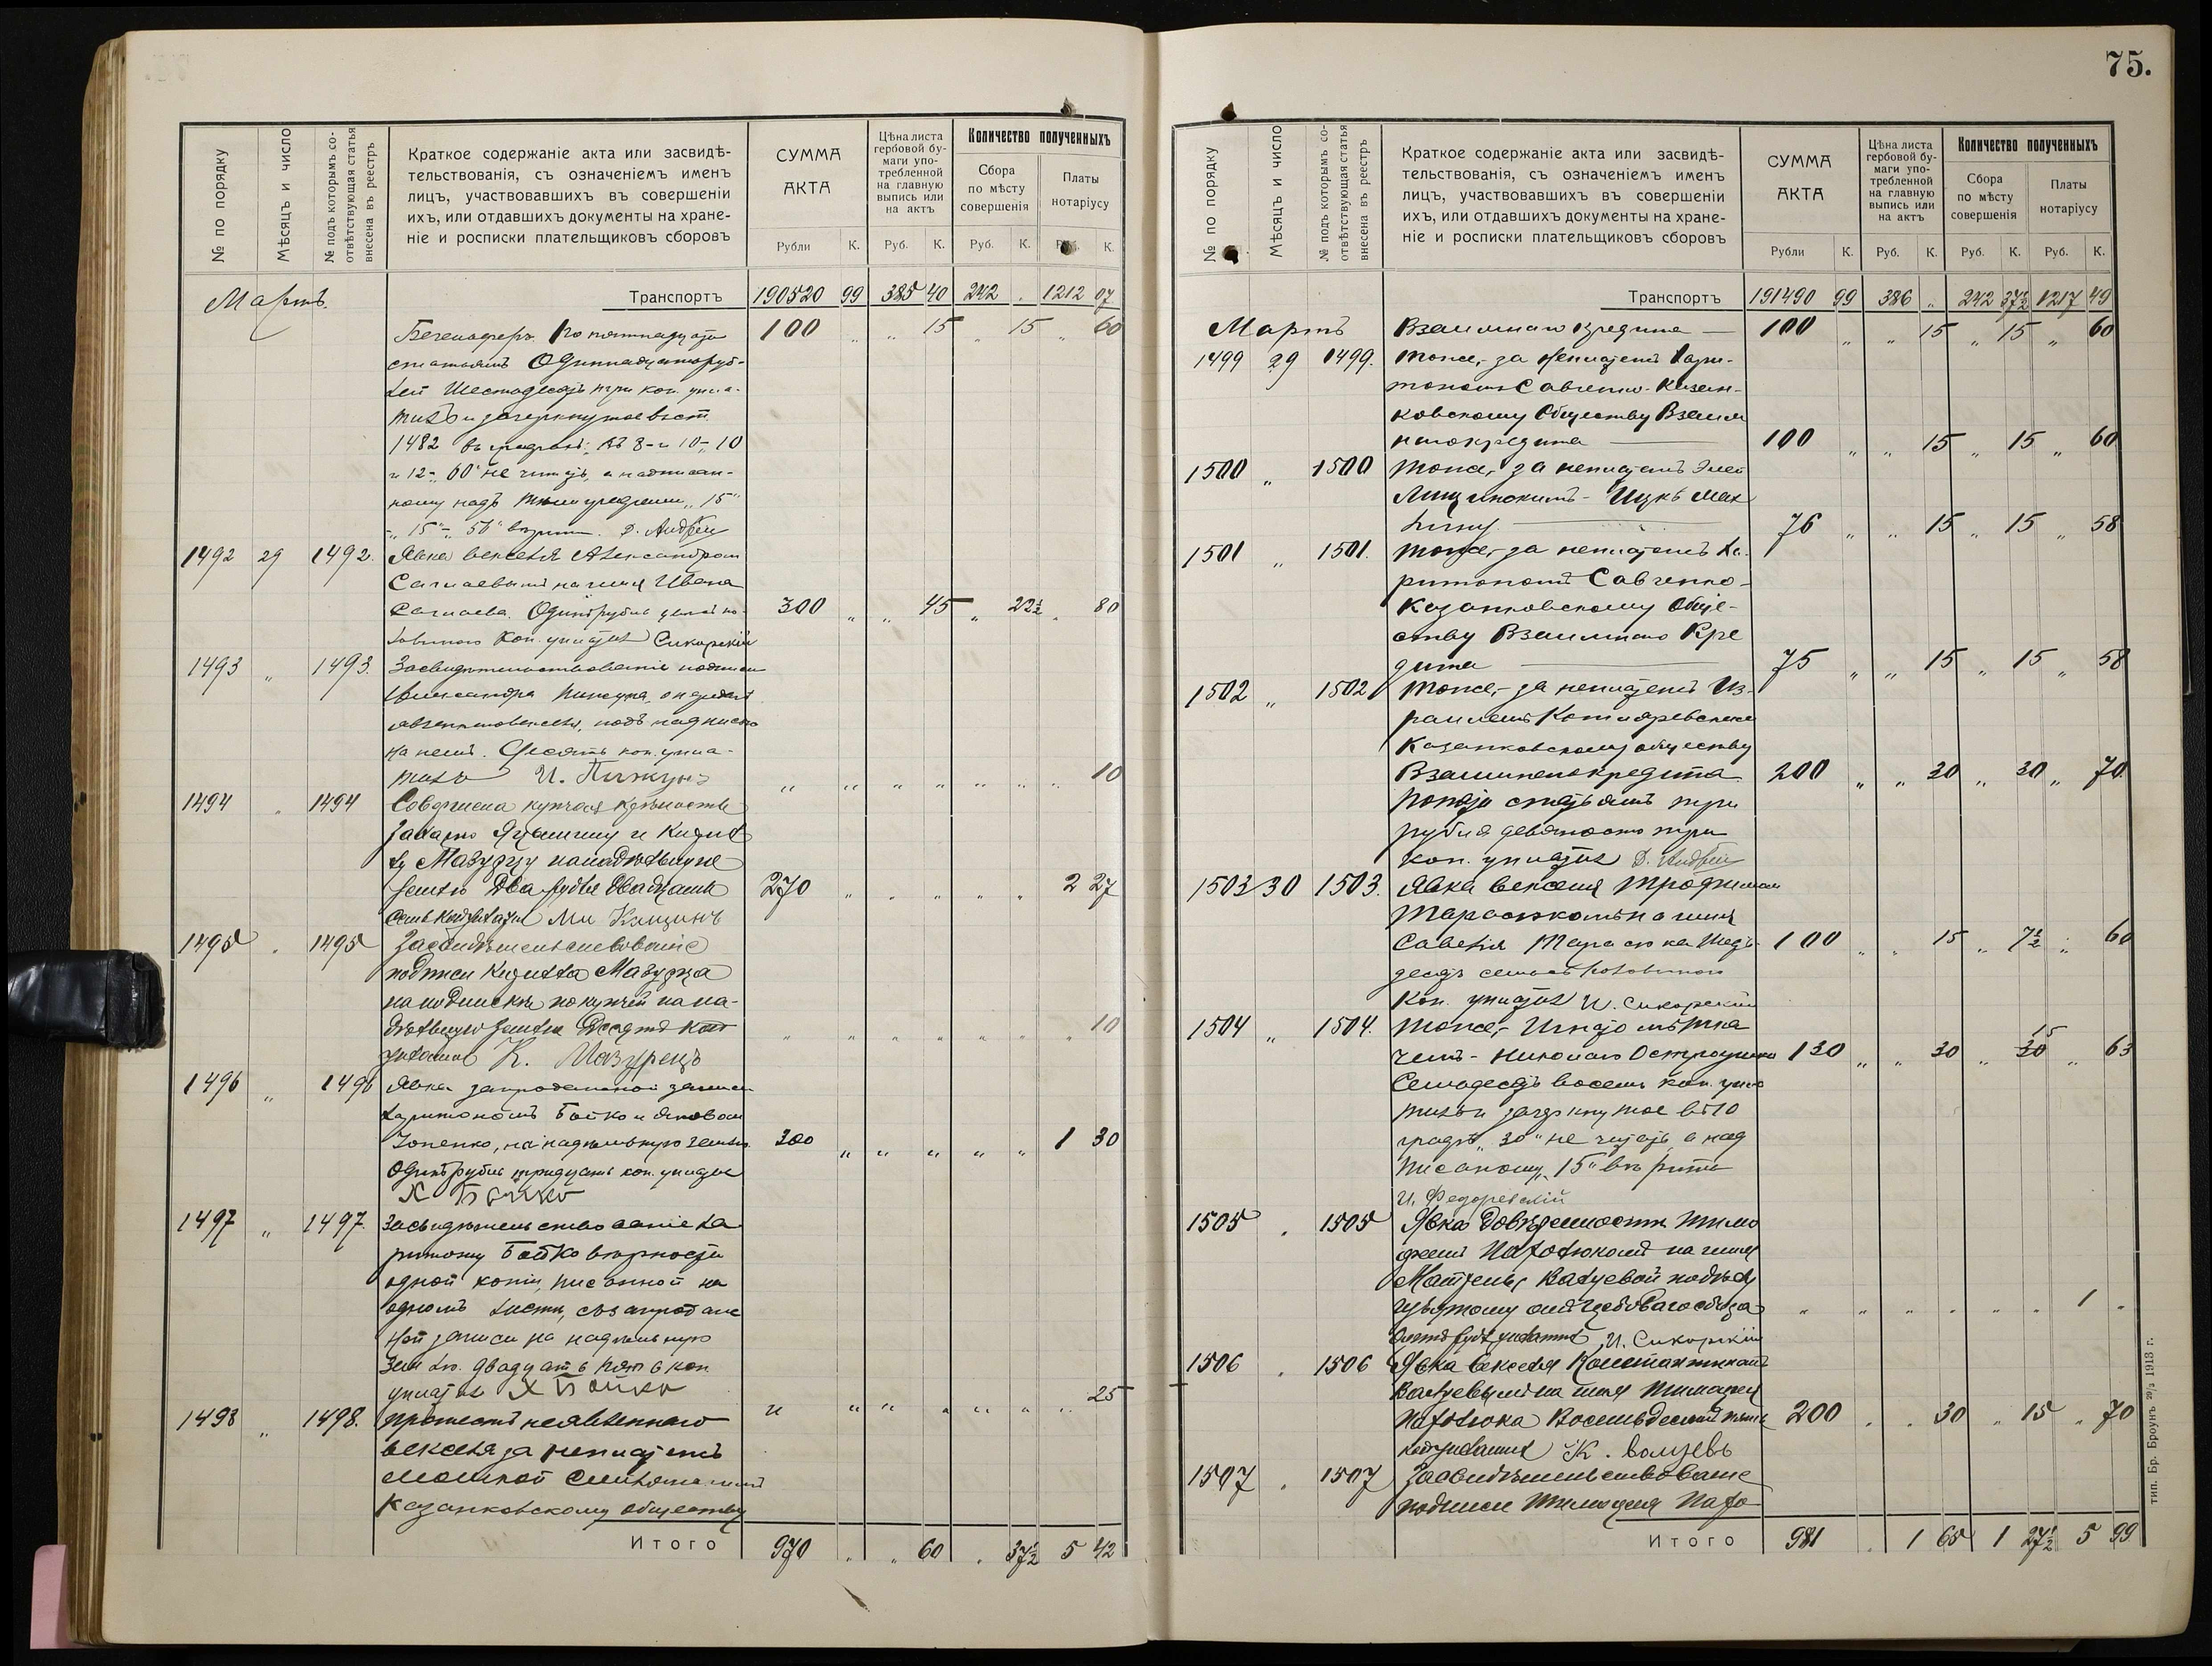 № по порядку
Мѣсяцъ и число
№ подъ которымъ со-
отвѣтствующая статья
внесена въ реестръ
Краткое содержаніе акта или засвидѣ-
тельствованія, съ означеніемъ именъ
лицъ, участвовавшихъ въ совершеніи
ихъ, или отдавшихъ документы на хране-
ніе и росписки плательщиковъ сборовъ
СУММА
АКТА
Рубли К.
Цѣна листа
гербовой бу-
маги упо-
требленной
на главную
выпись или
на актъ
Руб. К.
Количество полученныхъ
Сбора
по мѣсту
совершенія
Руб. К.
Платы
нотаріусу
К.
Мартъ. Транспортъ 190520 99 385 40 242 . 1212 07
По пятнадцати 100 „ „ 15 „ 15 „ 60
статьямъ Одиннадцать руб-
лей Шестьдесятъ три коп. упла-
тилъ и зачеркнутое въ ст.
1482 въ графахъ: въ 8 - и 10 - „10
и 12 - „60" не читать, а надписан-
ному надъ „15"
- „15" - „56" вѣрить. Д.
1492 29 1492. Явка векселя Александромъ
на имя Ивана
Одинъ рубль 300 „ „ 45 „ 22½ „ 80
ловиною коп. уплатилъ Сикорскій
1493 „ 1493. Засвидѣтельствованіе подписи
Александра
подъ надписью
на немъ. Десять коп. упла-
тилъ И. Пижунъ „ „ „ „ „ „ „ 10
1494 „ 1494 Совершена купчая крѣпость
и Кирил
лу Мазурцу на надѣльную
землю Два рубля двадцать 270 „ „ „ „ „ 2 27
семь коп.
1495 „ 1495 Засвидѣтельствованіе
подписи Кирилла Мазурца
на подпискѣ по купчей на на-
дѣльную землю Десять коп „ „ „ „ „ „ „ 10
уплатилъ К. Мазурецъ
1496 „ 1496 Явка запродажной записи
Харитономъ Бойко и Яковомъ
на надѣльную землю. 300 „ „ „ „ „ 1 30
Одинъ рубль тридцать коп. уплатилъ
Х Бойко
1497 „ 1497. Засвидѣтельствованіе Ха
ритону Бойко вѣрности
одной копіи, писанной на
одномъ листѣ, съ запродаж
ной записи на надѣльную
землю. Двадцать пять коп
уплатилъ Х Бойко „ „ „ „ „ „ „ 25
1498 „ 1498. Протестъ неявленнаго
векселя за неплатежъ
Казанковскому обществу
Итого 970 „ „ 60 „ 37½ 5 42
75.
№ по порядку
Мѣсяцъ и число
№ подъ которымъ со-
отвѣтствующая статья
внесена въ реестръ
Краткое содержаніе акта или засвидѣ-
тельствованія, съ означеніемъ именъ
лицъ, участвовавшихъ въ совершеніи
ихъ, или отдавшихъ документы на хране-
ніе и росписки плательщиковъ сборовъ
СУММА
АКТА
Рубли К.
Цѣна листа
гербовой бу-
маги упо-
требленной
на главную
выпись или
на актъ
Руб. К.
Количество полученныхъ
Сбора
по мѣсту
совершенія
Руб. К.
Платы
нотаріусу
Руб. К.
Транспортъ 191490 99 386 „ 242 37½ 1217 49
Мартъ Взаимнаго кредита — 100 „ „ 15 „ 15 „ 60
1499 29 1499. Тоже, - за неплатежъ Хари-
тономъ Савченко - Казан-
ковскому Обществу Взаим
наго кредита — 100 „ „ 15 „ 15 „ 60
1500 „ 1500 Тоже, - за неплатежъ
76 „ „ 15 „ 15 „ 58
1501 „ 1501. Тоже, - за неплатежъ Ха-
ритономъ Савченко -
Казанковскому Обще-
ству Взаимнаго Кре
дита — 75 „ „ 15 „ 15 „ 58
1502 „ 1502 Тоже, - за неплатежъ Из-
раилемъ Котляревскимъ
Казанковскому обществу
Взаимнаго кредита 200 „ „ 30 „ 30 „ 70
По пяти статьямъ три
рубля девяносто три
коп. уплатилъ Д.
1503 30 1503. Явка векселя Трофимомъ
Тарасюкомъ на имя
Савелія Тарасюка Шесть- 100 „ „ 15 „ 7½ „ 60
десятъ семь съ половиною
коп. уплатилъ И. Сикорскій
1504 „ 1504. Тоже, - Игнатомъ Тка
чемъ - Николаю 130 „ „ 30 „ 15 30 „ 63
Семьдесятъ восемь коп. упла
тилъ и зачеркнутое въ 10
графѣ „30" не читать, а над
писанному „15" вѣрить
И. Федоревскій
1505 „ 1505 Явка довѣренности Тимо
феемъ на имя
Матрены Валуевой
„ „ „ „ „ „ 1 „
уплатилъ И. Сикорскій
1506 „ 1506 Явка векселя Константиномъ
Валуевымъ на имя Тимофея
Восемьдесятъ пять 200 „ „ 30 „ 15 „ 70
коп уплатилъ К. Валуевъ
1507 „ 1507 Засвидѣтельствованіе
подписи Тимофея
Итого 981 „ 1 65 1 27½ 5 99
тип. Бр. Броунъ 29/3 1913 г.